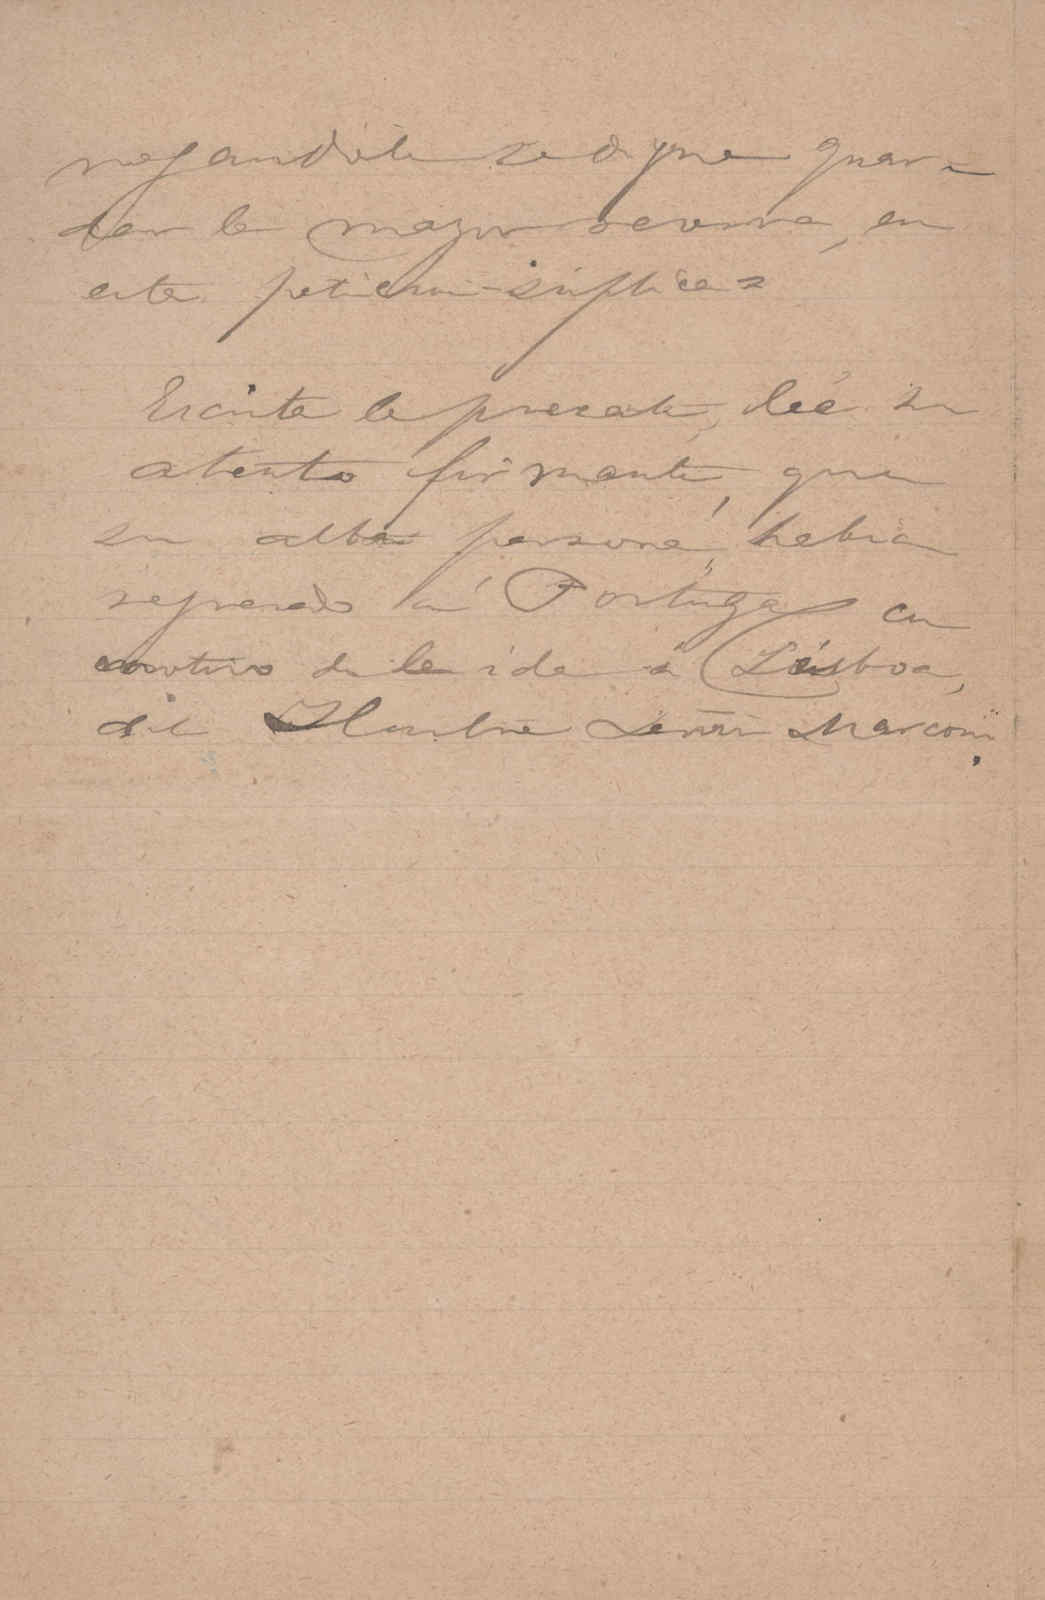 rogandole se digne guar-
dar la mayor reserva, en
esta peticion-súplica=
Escrita la presente, leé su
atento firmante, que
su alta persona, habia
regresado á Portugal en
motivo de la ida á Lisboa,
del Ilustre Señor Marconi.